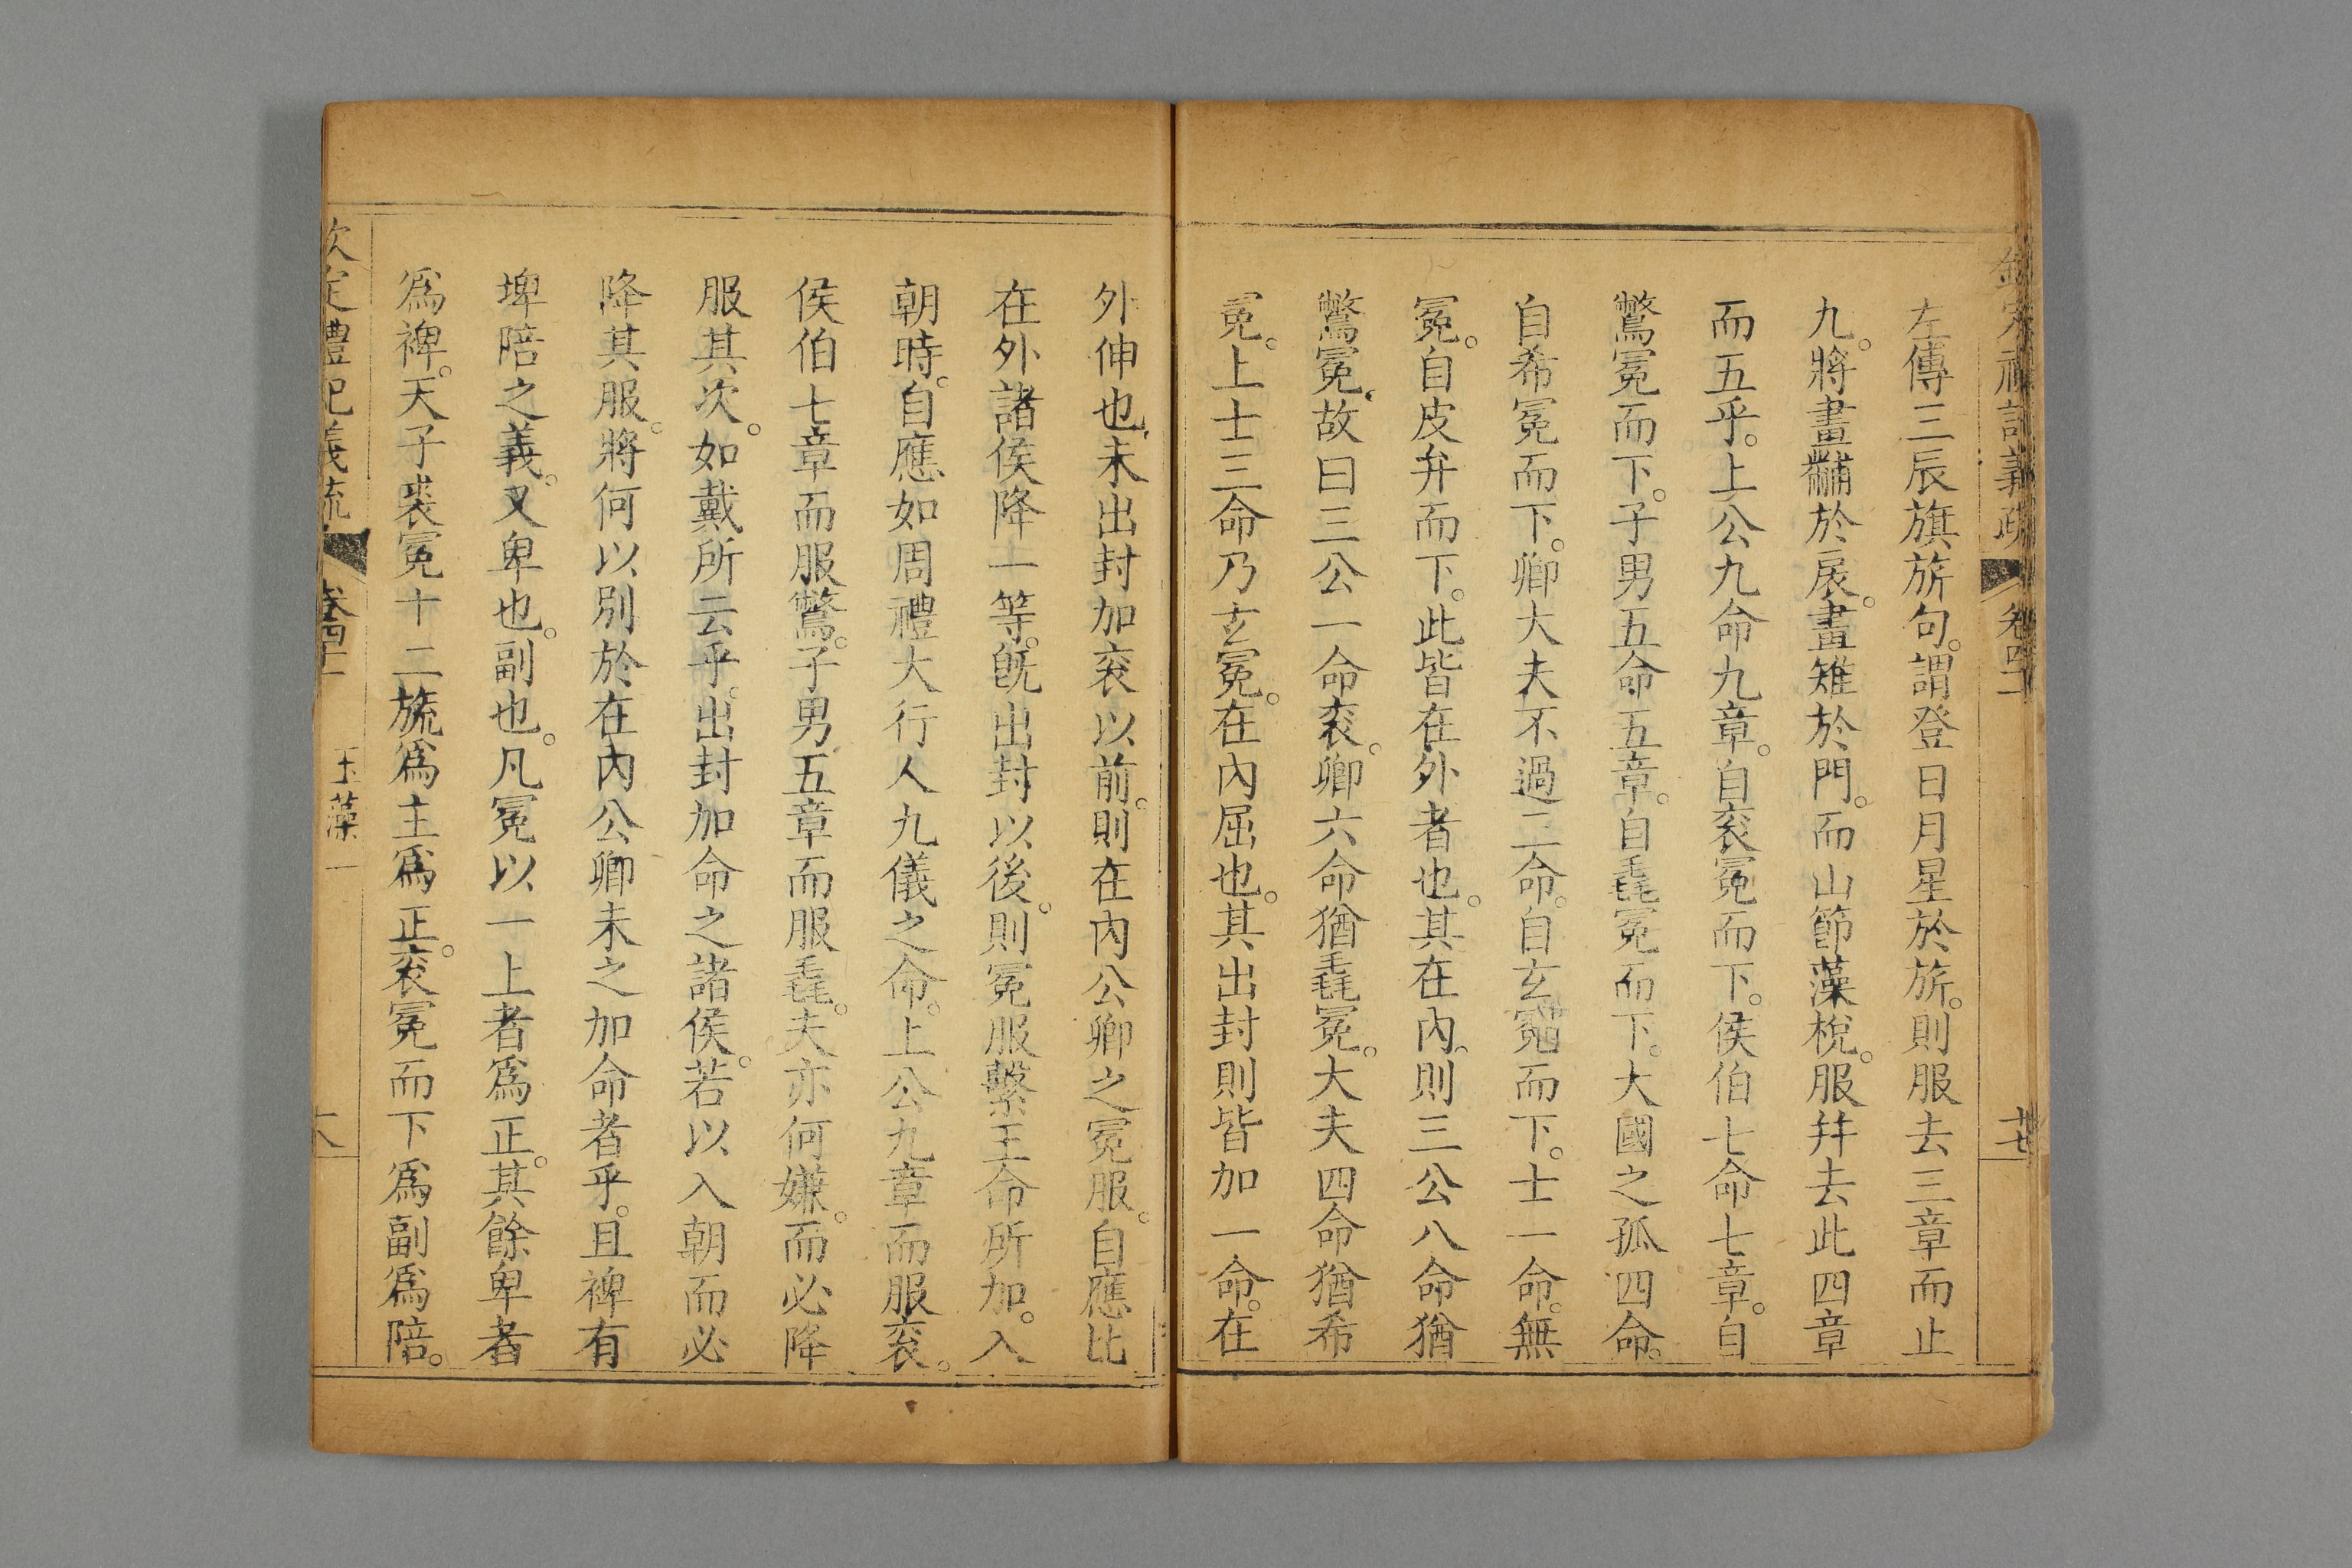 欽定禮記義疏 卷四十一 十七
左傳三辰旗旂句。謂登日月星於旂。則服去三章而止
九。將畫黼於扆。畫雉於門。而山節藻梲。服幷去此四章
而五乎。上公九命九章。自衮冕而下。侯伯七命七章。自
鷩冕而下。子男五命五章。自毳冕而下。大國之孤四命。
自希冕而下。卿大夫不過二命。自玄冕而下。士一命。無
冕。自皮弁而下。此皆在外者也。其在內。則三公八命猶
鷩冕。故曰三公一命衮。卿六命猶毳冕。大夫四命猶希
冕。上士三命乃玄冕。在內屈也。其出封則皆加一命。在
外伸也。未出封加衮以前。則在內公卿之冕服。自應比
在外諸侯降一等。旣出封以後。則冕服繫王命所加。入
朝時。自應如周禮大行人九儀之命。上公九章而服衮。
侯伯七章而服鷩。子男五章而服毳。夫亦何嫌。而必降
服其次。如戴所云乎。出封加命之諸侯。若以入朝而必
降其服。將何以別於在內公卿未之加命者乎。且裨有
埤陪之義。又卑也。副也。凡冕以一上者爲正。其餘卑者
爲裨。天子裘冕十二旒爲主爲正。衮冕而下爲副爲陪。
欽定禮記義疏 卷四十一 玉藻一 十八